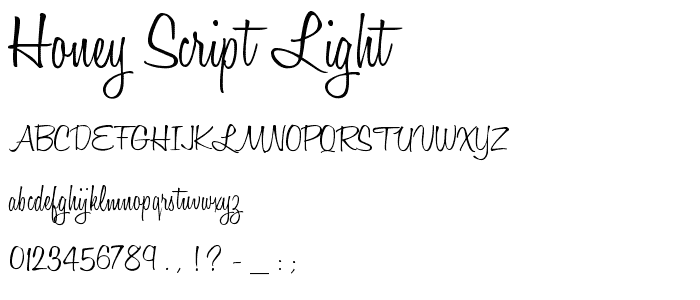 Honey Script Light
ABCDEFGHIJKLMNOPQRSTUVWXYZ
abcdefghijklmnopqrstuvwxyz
0123456789 . , ! ? - _ : ;